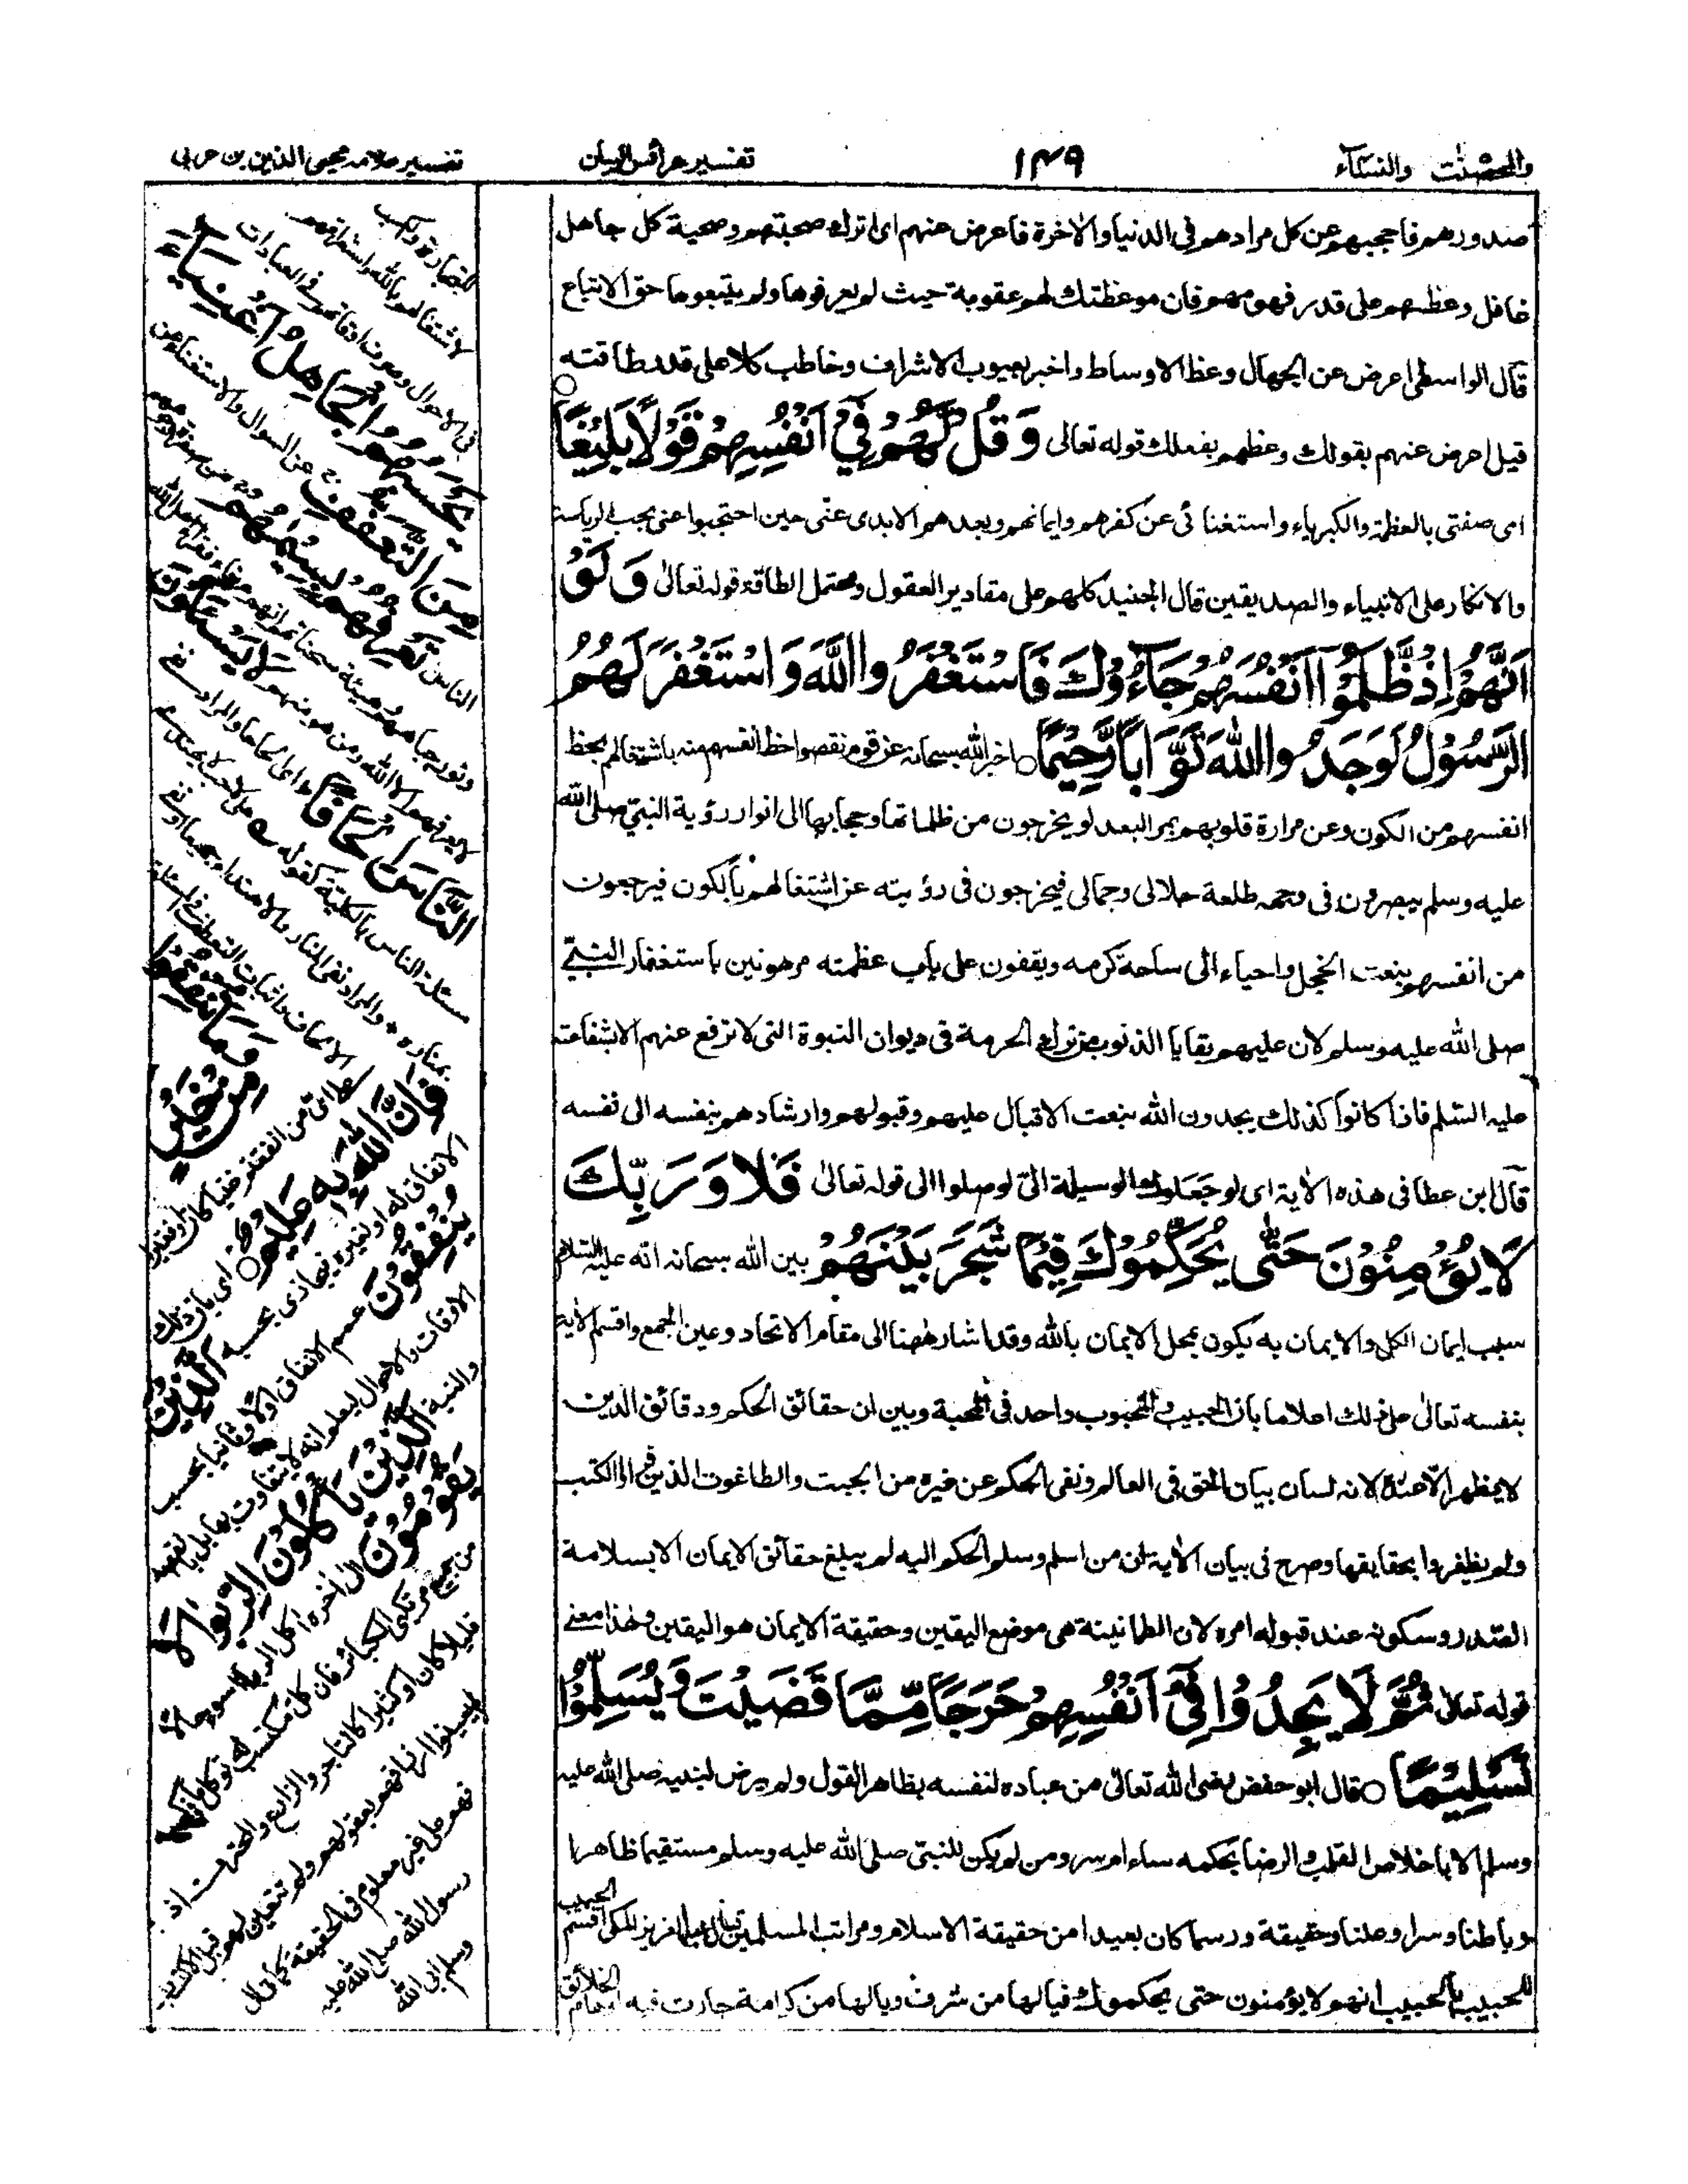 والمحصنٰت والنسآء
١٣٩
تفسير عرائس البيان
تفسير علامه محيى الدين بن عربى
صدورهم فاحجبهم عن كل مرادهم فى الدنيا والاٰخرة فاعرض عنهم اى اترك صحبتهم وصحبة كل جاهل
غافل وعظهم على قدر فهومهم فان موعظتك لهم عقوبة حيث لم يعرفوها ولم يتبعوها حق الاتباع
قال الواسطى اعرض عن الجهال وعظ الاوساط واخبر بعيوب الاشراف وخاطب كلا على قدر طاقته
قيل اعرض عنهم بقولك وعظهم بفعلك قوله تعالى وَقُلْ لَّهُمْ فِيْٓ اَنْفُسِهِمْ قَوْلًا بَلِيْغًا
اى صفتى بالعظمة والكبرياء واستغنائى عن كفرهم وايمانهم وبعدهم الابدى عنى حين احتجبوا عنى بحب الرياسة
والانكار على الانبياء والصديقين قال الجنيد كلهم على مقادير العقول ومحتمل الطاقة قوله تعالىٰ وَلَوْ
اَنَّهُمْ اِذْ ظَّلَمُوْٓا اَنْفُسَهُمْ جَآءُوْكَ فَاسْتَغْفَرُوا اللّٰهَ وَاسْتَغْفَرَ لَهُمُ
الرَّسُوْلُ لَوَجَدُوا اللّٰهَ تَوَّابًا رَّحِيْمًا ○ اخبر الله سبحانه عن قوم نقصوا حظ انفسهم منه باشتغالهم بحظ
انفسهم من الكون وعن مرارة قلوبهم بمر البعد لو يخرجون من ظلماتها وحجابها الى انوار رؤية النبى صلى الله
عليه وسلم يبصرون فى وجهه طلعة جلالى وجمالى فيخرجون فى رؤيته عن اشتغالهم بالكون فيرجعون
من انفسهم بنعت الخجل واحياء الى ساحة كرمه ويقفون على باب عظمته مرهونين باستغفار النبى
صلى الله عليه وسلم لان عليهم بقايا الذنوب من ترك الحرمة فى ديوان النبوة التى لا ترفع عنهم الا بشفاعته
عليه السّلم فاذا كانوا كذلك يجدون الله بنعت الاقبال عليهم وقبولهم وارشادهم بنفسه الى نفسه
قال ابن عطا فى هذه الاٰية اى لو جعلوك الوسيلة الىّ لوصلوا الى قوله تعالىٰ فَلَا وَرَبِّكَ
لَا يُؤْمِنُوْنَ حَتّٰى يُحَكِّمُوْكَ فِيْمَا شَجَرَ بَيْنَهُمْ بين الله سبحانه انه عليه السلام
سبب ايمان الكل والايمان به يكون بمحل الايمان بالله وقد اشار هٰهنا الى مقام الاتحاد وعين الجمع واقسم الاٰية
بنفسه تعالىٰ على ذلك اعلاما بان الحبيب والمحبوب واحد فى المحبة وبين ان حقائق الحكم ودقائق الدين
لا يظهر الا عنده لانه لسان بيان الحق فى العالم ونفى الحكم عن غيره من الجبت والطاغوت الذين قرأوا الكتب
ولم يظفروا بحقايقها وصرح فى بيان الاٰية ان من اسلم وسلم الحكم اليه لم يبلغ حقائق الايمان الا بسلامة
الصدر وسكونه عند قبوله امره لان الطمانينة هى موضع اليقين وحقيقة الايمان هو اليقين وهٰذا معنى
قوله تعالىٰ ثُمَّ لَا يَجِدُوْا فِيْٓ اَنْفُسِهِمْ حَرَجًا مِّمَّا قَضَيْتَ وَيُسَلِّمُوْا
تَسْلِيْمًا ○ قال ابو حفص رضى الله تعالىٰ من عباده لنفسه بظاهر القول ولم يرض لنبيه صلى الله عليه
وسلم الا باخلاص القلب والرضا بحكمه ساء ام سر ومن لم يكن للنبى صلى الله عليه وسلم مستقيما ظاهرا
وباطنا وسرا وعلنا وحقيقة ورسما كان بعيدا من حقيقة الاسلام ومراتب المسلمين قال عبد العزيز المكى اقسم الحبيب
للحبيب بالحبيب انهم لا يؤمنون حتى يحكموك فيالها من شرف ويالها من كرامة حارت فيه الخلائق
لاشتغالهم بالله واستغراقهم
فى الاحوال وصرف اوقاتهم فى العبادات
يَحْسَبُهُمُ الْجَاهِلُ اَغْنِيَآءَ
مِنَ التَّعَفُّفِ عن السوال والاستغناء عن
الناس تَعْرِفُهُمْ بِسِيْمٰهُمْ
لا يعرفهم الا الله ومن هو منهم لَا يَسْـَٔلُوْنَ
النَّاسَ اِلْحَافًا
وَمَا تُنْفِقُوْا
مِنْ خَيْرٍ
فَاِنَّ اللّٰهَ بِهٖ عَلِيْمٌ ○ اى بان ذلك
الانفاق له او لغيره يجازى بحسبه اَلَّذِيْنَ
يُنْفِقُوْنَ عمم الانفاق اولا وثانيا بحسب
الاوقات والاحوال ليعلم انه لا يتفاوت بها بل بالقصد
والنية اَلَّذِيْنَ يَاْكُلُوْنَ الرِّبٰوا لَا
يَقُوْمُوْنَ الى اٰخره اكل الربا اسوء حالا
من جميع مرتكبى الكبائر فان كل مكتسب له توكل
قليلا كان او كثيرا كالتاجر والزارع والمحترف اذ
لم يعينوا ارزاقهم بعقولهم ولم تتعين لهم قبل الاكتساب
فهم على غير معلوم فى الحقيقة كما قال
رسول الله صلى الله عليه
وسلم ابى الله